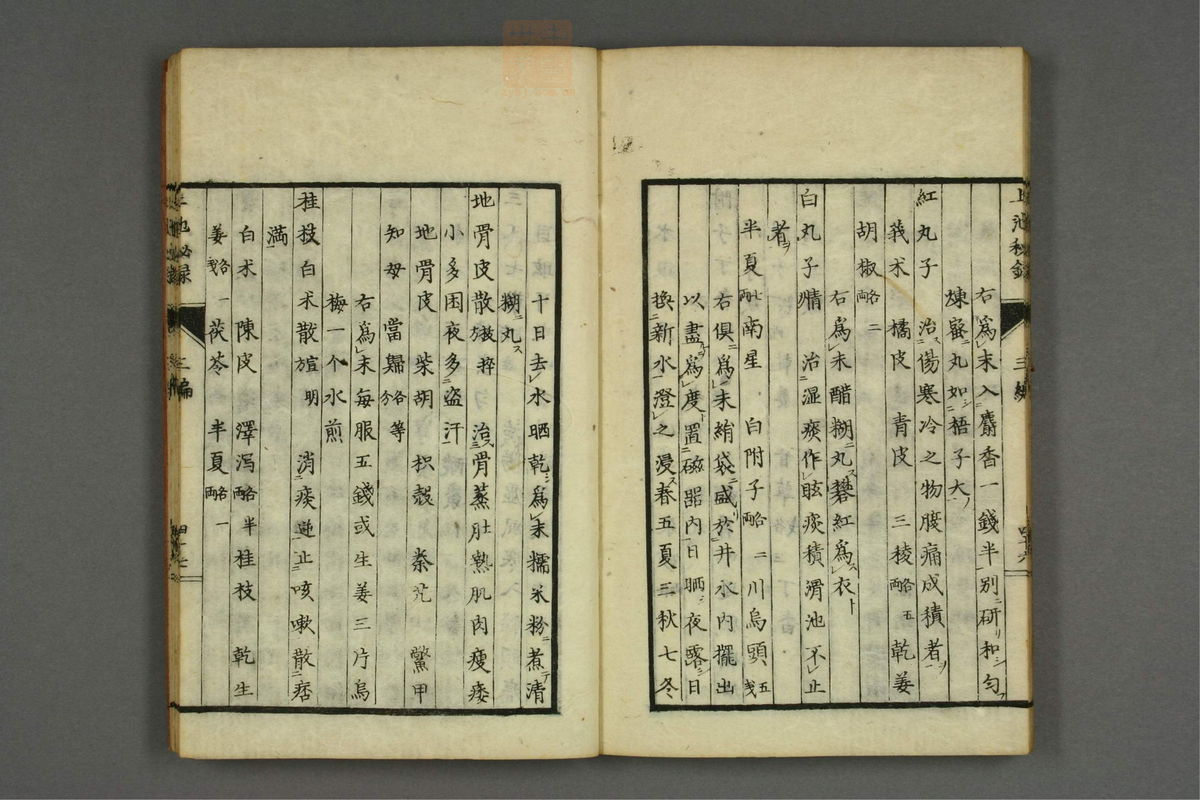 右爲末入麝香一錢半別研和勻
煉蜜丸如梧子大
紅丸子　治傷寒冷之物腹痛成積者
莪朮　橘皮　青皮　三稜各五両　乾姜
胡椒各二両
右爲末醋糊丸礬紅爲衣
白丸子情　治湿痰作眩痰積滑池不止
者
半夏七両　南星　白附子各二両　川烏頭五戋
右倶爲末絹袋盛於井水内擺出
以盡爲度置磁器内日晒夜露日
換新水澄之浸春五夏三秋七冬
十日去水晒乾爲末糯米粉煮清
糊丸
地骨皮散　治骨蒸肚熟肌肉瘦痿
小多困夜多盗汗
地骨皮　柴胡　枳殻　秦艽　鱉甲
知母　當歸各等分
右爲末每服五錢或生姜三片烏
梅一个水煎
桂枝白朮散宣明　消痰逆止咳嗽散痞
満
白朮　陳皮　澤瀉各半両　桂枝　乾生
姜各一戋　茯苓　半夏各一両
上池秘録　三編　四十六
上池必録　三編　四十七